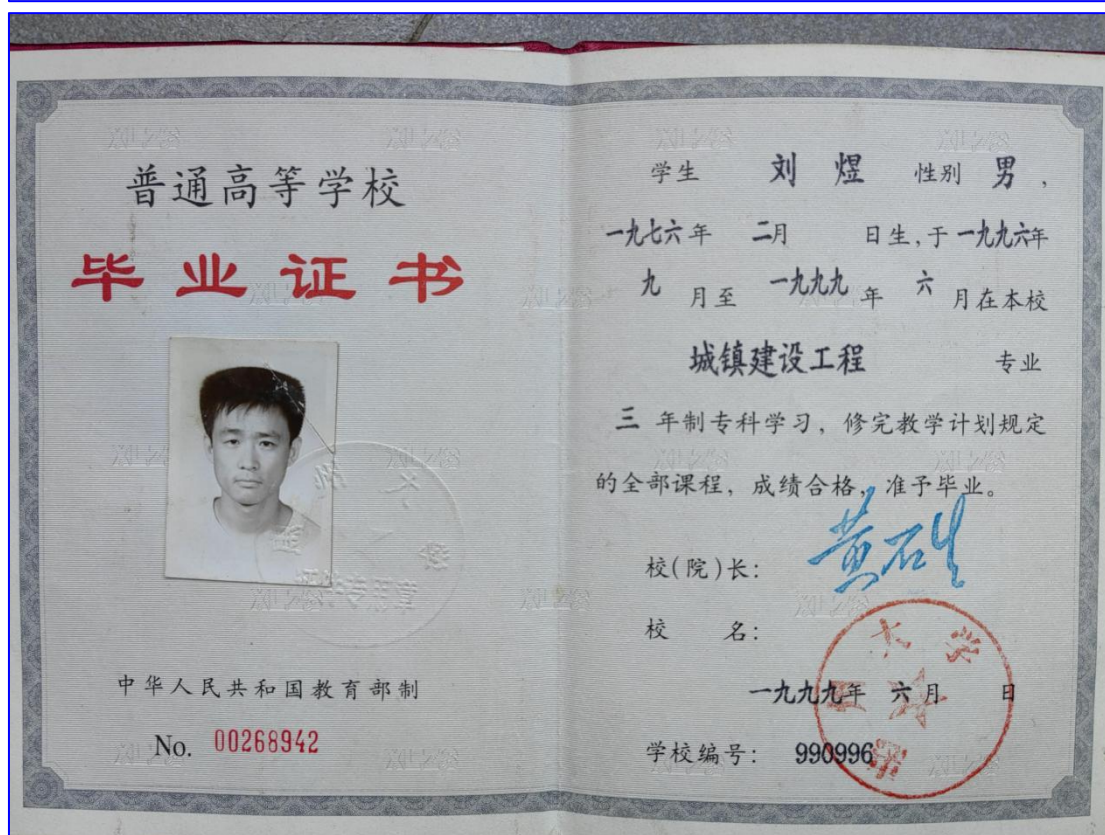 普通高等学校
毕业证书
中华人民共和国教育部制
No. 00268942
学生 刘煜 性别 男,
一九七六年 二月 日生,于一九九六年
九 月至 一九九九 年 六 月在本校
城镇建设工程 专业
三 年制专科学习,修完教学计划规定
的全部课程,成绩合格,准予毕业。
校(院)长:
校 名:
大学
一九九九年 六月 日
学校编号: 990996